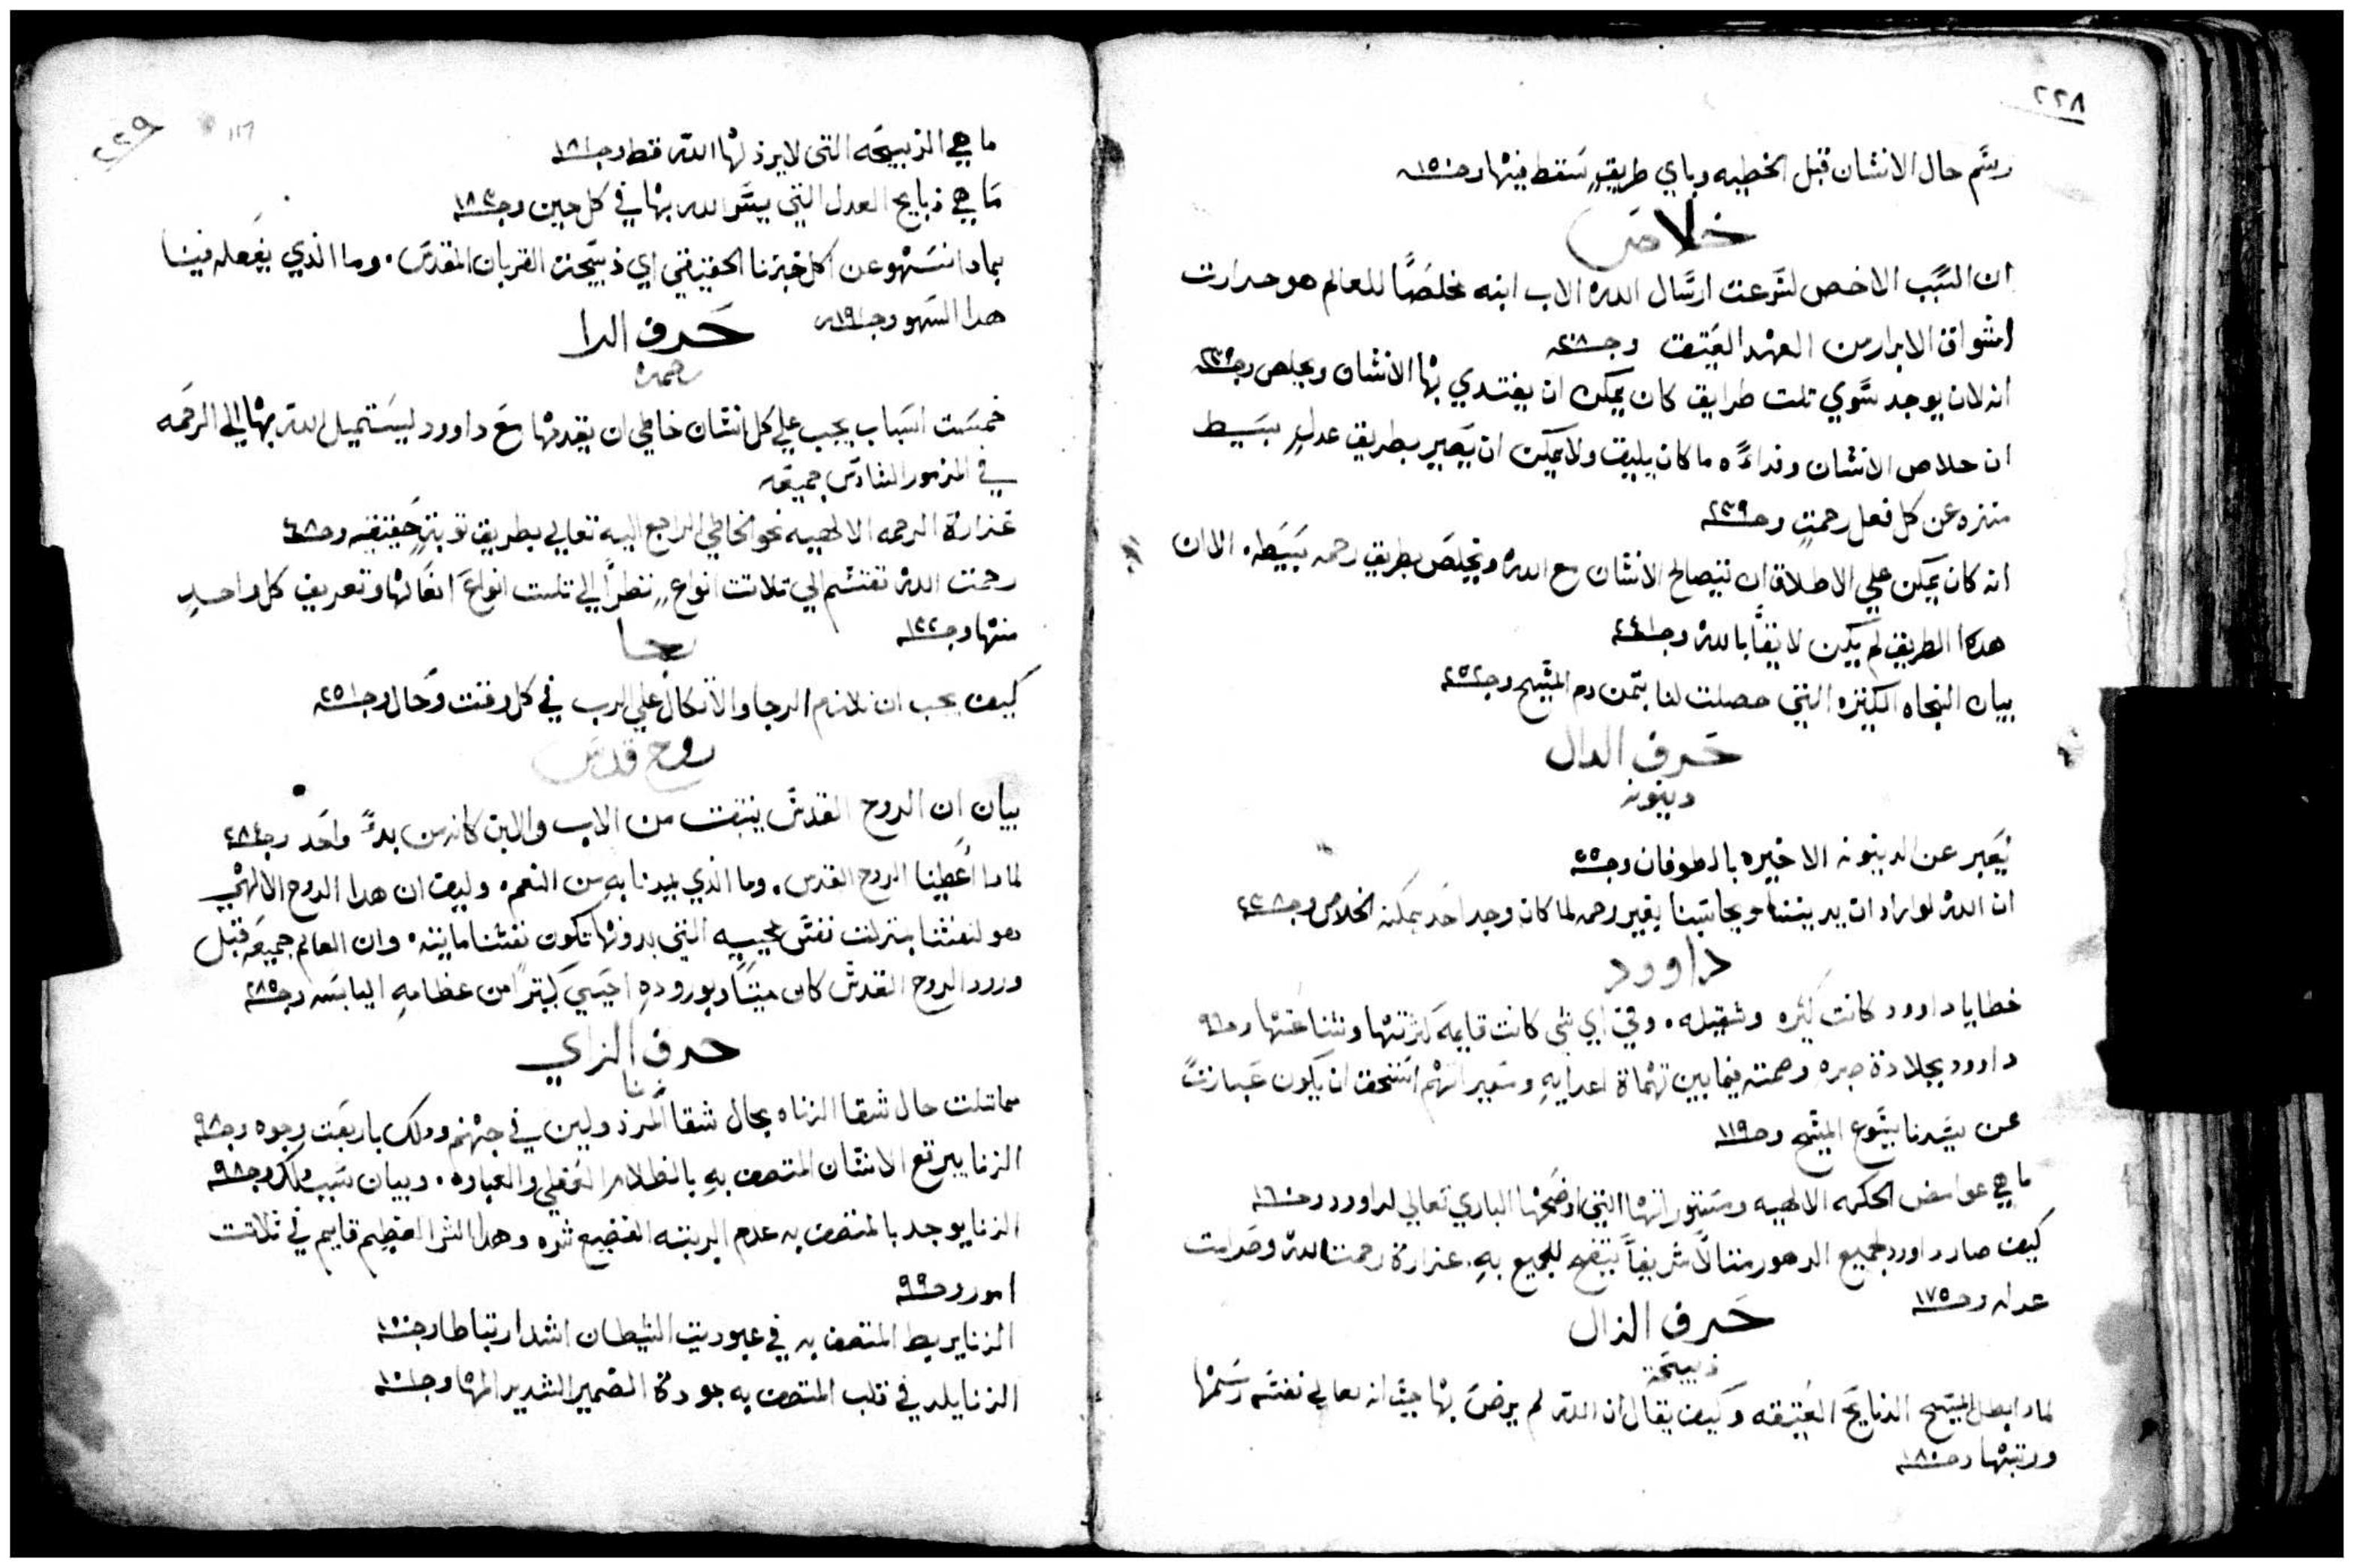 ٢٢٨
رسَّم حال الانسَّان قبل الخطيه وباي طريقٍ سَقط فيها وجـ ١٥٠ـه
خلاص
ان السَّبب الاخص لسَّرعت ارسَّال الله الاب ابنه مخلصًا للعالم هو حرارت
اشواق الابرار من العهد العَتيق وجـ ٢٠٨ـه
انه لان يوجد سَّوي تلت طرايق كان يمكن ان يفتدي بها الانسَّان ويخلص وجـ ٢٣٩ـه
ان خلاص الانسَّان وفداءَه ما كان يليق ولا يمكن ان يَصير بطريق عدلٍ بسَيط
متنزه عن كل فعل رحمتٍ وجـ ٢٣٩ـه
انه كان يمكن علي الاطلاق ان يتصالح الانسَّان مع الله ويخلصَ بطريق رحمه بسَيَطه. الا ان
هدا الطريق لم يكن لايقًا بالله وجـ ٢٤١ـه
بيان النجاه الكتيره التي حصلت لنا بتمن دم المسَّيح وجـ ٢٥٢ـه
حَرف الدال
دينونه
يُعَبر عن الدينونه الاخيره بالطوفان وجـ ٥٥ـه
ان الله لو اراد ان يديننا ويحاسَّبنا بغير رحمه لما كان وجد احَد يمكنه الخلاص وجـ ٢٣٨ـه
داوود
خطايا داوود كانت كثَره وثقيله. وفي اي شي كانت قايمهَ كثرتها وشناعَتها وجـ ٩٦
داوود بجلادة صبره وصمته فيما بين تهماة اعدايهِ وسَّعيراتهم استَّحق ان يكون عَبارتً
عن سَّيدنا يسَّوع المسَّيح وجـ ١١٩ـه
ما هي غوامض الحكمه الالهيه ومسَتوراتها التي اوضَحها الباري تعالي لداوود وجـ ١٦٠ـه
كيف صار داوود لجميع الدهور متالًا شَّريفًا يتضح للجميع بهِ. غزارة رحمت الله وصَرامت
عدله وجـ ١٧٥ـه
حَرف الذال
ذبيحَه
لمادا ابطل المسَّيح الدبايحَ العَتيقه وكيف يقال ان الله لم يرضَ بها حيت انه تعالي نفسَّه رسَمها
ورتبها وجـ ١٨٠ـه
٢٢٩
ما هي الذبيحَه التي لا يرذلها الله قط وجـ ١٨١ـه
مَا هي ذبايح العدل التي يسَّر الله بها في كل حين وجـ ١٨٣ـه
بمادا نسَهو عن اكل خبزنا الحقيقي اي ذبيحت القربان المقدسَ. وما الذي يفَعله فينا
هدا السَهو وجـ ١٩١ـه
حَرف الرا
رحمه
خمسَت اسَباب يجب علي كل انسَّان خاطي ان يقدمها مَعَ داوود ليسَتميل الله بها الي الرحَمه
في المزمور السَّادسَ جميعَه
غزارة الرحمه الالهيه نحو الخاطي الراجع اليه تعالي بطريق توبةٍ حَقيقيه وجـ ٤٨ـه
رحمت الله تنقسَّم الي تلاتت انواعٍ نظرًا الي تلت انواعَ افعَالها وتعريف كل واحدٍ
منها وجـ ١٢٢ـه
رجا
كيف يجب ان نلازم الرجا والاتكال علي الرب في كل وقت وحَال وجـ ٢٥١ـه
روح قدسَ
بيان ان الروح القدسَّ ينبتق من الاب والابن كانه من بدءً واحَد وجـ ٢٨٤ـه
لمادا اُعطينا الروح القدس. وما الذي يفيدنا بهِ من النعم. وكيف ان هدا الروح الالهي
هو لنفسَّنا بمنزلت نفسَّ محييه التي بدونها تكون نفسَّنا مايته. وان العالم جميعَه قبل
ورود الروح القدسَّ كان ميتًا وبورودهِ احيَي كتيرًا من عظامهِ اليابسَه وجـ ٢٨٥ـه
حرف الزاي
زنا
مماتلت حال شقا الزناه بحال شقا المَرذولين في جهنم ودلك باربَعت وجوه وجـ ٩٨ـه
الزنا يبرقع الانسَّان المتصف بهِ بالظلام العَقلي والغباوه. وبيان سَبب دلك وجـ ٩٨ـه
الزنا يوجد بالمتصف به عدم الريته الفضيع شره وهدا الشر العَظيم قايم في تلاتت
امور وجـ ٩٩ـه
الزنا يربط المتصف به في عبوديت الشيطان اشد ارتباطا وجـ ١٠٠ـه
الزنا يلد في قلب المتصف به جودة الضمير الشديد المها وجـ ١٠١ـه